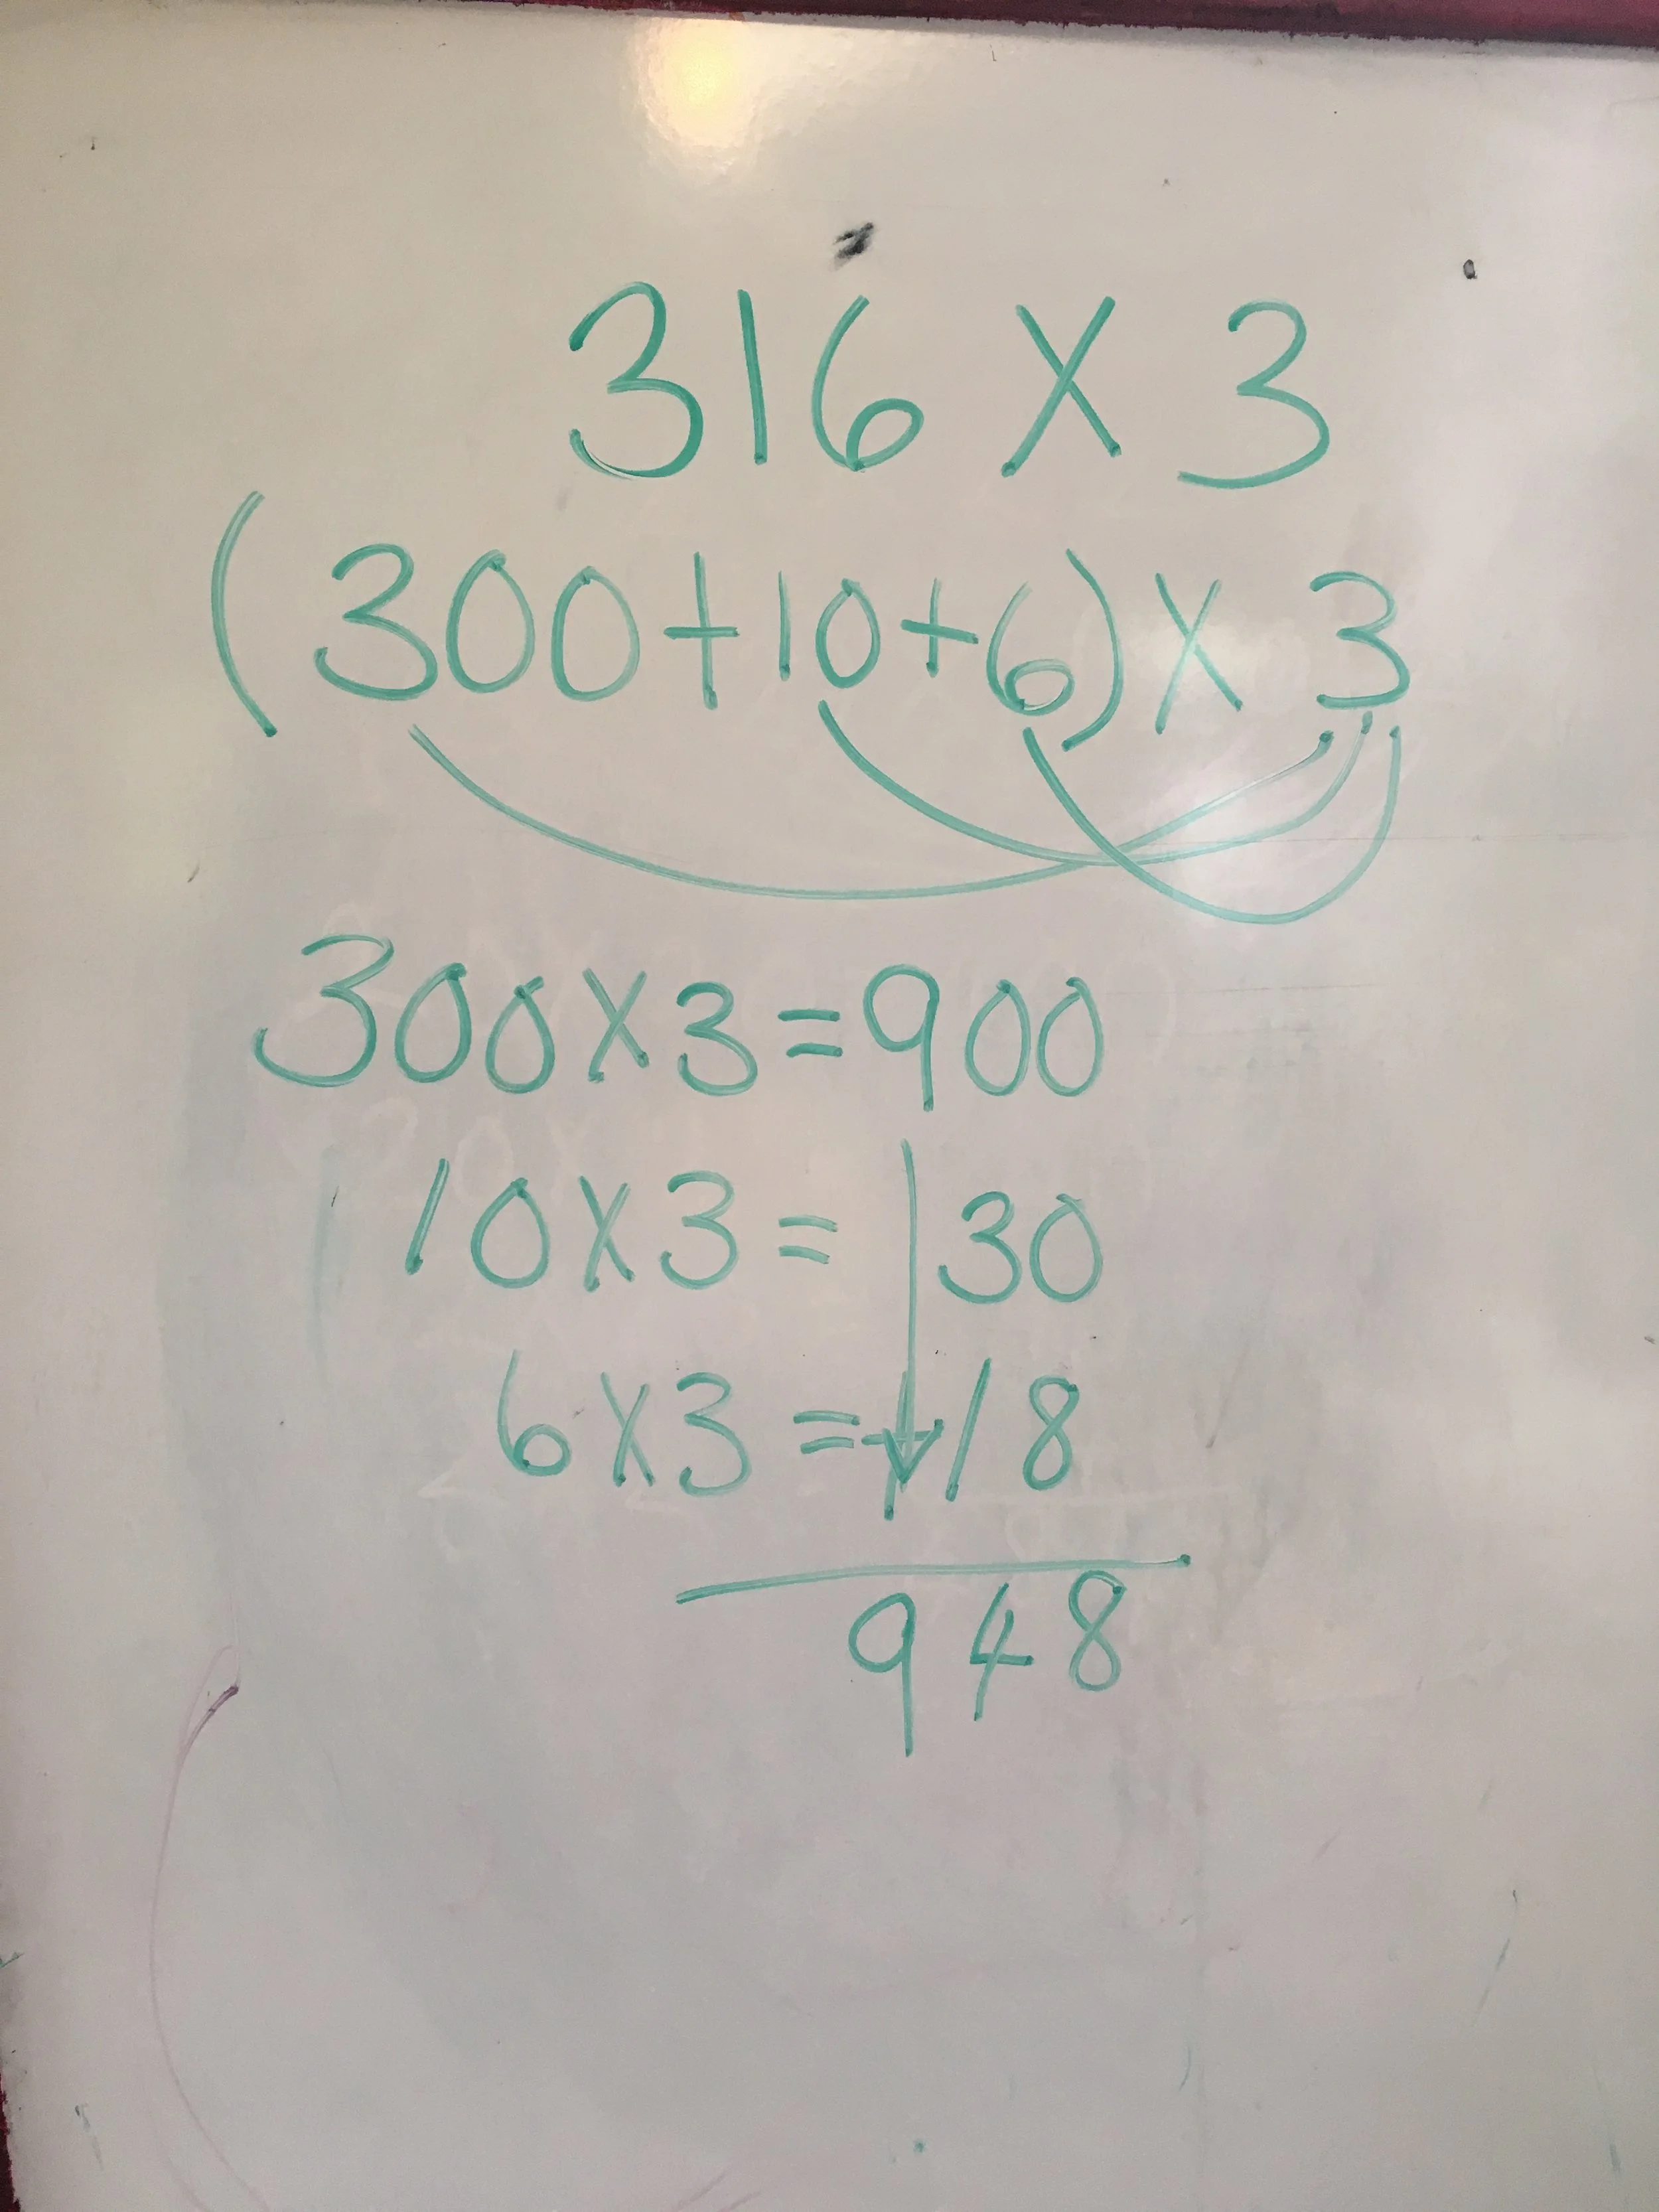 316 X 3
(300+10+6) X 3
300X3=900
10X3= 30
6X3=+18
948